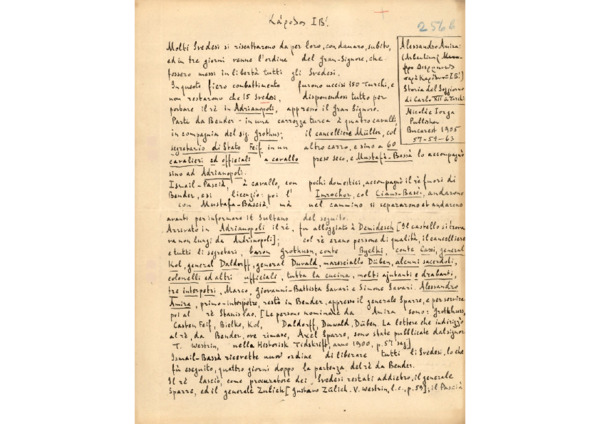 Κάρολος ΙΒ'.
2566
Molti Svedesi si riscattarono da per loro, con danaro, subito,
ed in tre giorni venne l'ordine del Gran-Signore, che
fossero messi in libertà tutti gli Svedesi.
In questo fiero combattimento furono uccisi 150 Turchi, e
non restarono che 15 Svedesi, disponendosi tutto per
portare il rè in Adrianopoli, appreno il Gran Signore.
Parte da Bender - in una carrozza turca à quatro cavalli
in compagnia del sig. Grothus; il cancelliere Müller, col
segretario di Stato Feif in un altro carro, e sino a 60
cavalieri ed officiali a cavallo peso seco, e Mustafà-Bassià lo accompagnò
sino ad Adrianopoli.
Ismail-Passià, à cavallo, con pochi domestici, accompagnò il rè fuori di
Bender, e si licenziò: poi l' Imrochor, col Ciaus-Bassi, andarono
con Mustafa-Bàssià mà nel cammino si separarono ed andarono
avanti per informare il Sultano del seguito.
Arrivato in Adrianopoli il rè, fu alloggiato à Demidesch [Il castello si trova
va non lungi da Adrianopoli]; col rè ereno persone di qualità, il cancelliere
e tutti di segretari, baron grothusen, conte Byelke, conte Gussi, general
Kol, general Daldorff, general Duvald, maresciallo Düben, alcuni sacerdoti,
colonelli ed altri officiali, tutta la cucina, molti ajutanti e drabanti,
tre interpetri, Marco, Giovanni-Battista Savari e Simone Savari. Alessandro
Amira, primo-interpetro, restò in Bender, appresso il generale Sparre, e per servire
poi al rè Stanislao. [Le persone nominate da Amira sono: Grothhusen,
Casten Feif, Bielke, Kol, Daldorff, Duvald, Düben. La lettere che indirizzò
al rè, da Bender, ove rimase, Axel Sparre, sono state pubblicate dal signor
T. Westrin, nella Historisk Tidskrift, anno 1900, p. 57 seg.]
Ismail-Bassà ricevette nuov' ordine di liberare tutti di Svedesi, lo che
fù eseguito, quattro giorni doppo la partenza del rè da Bender.
Il rè lasciò, come procuratore dei Svedesi restati addietro, il generale
Sparre, ed il generale Zulich [Gustavo Zülich. V. Westrin, l. c., p. 59]; il Passià
Alessandro Amira:
Storia del Soggiorno
di Carlo XII in Turchia
Nicolae Iorga
Bucarest 1905
57-59-63